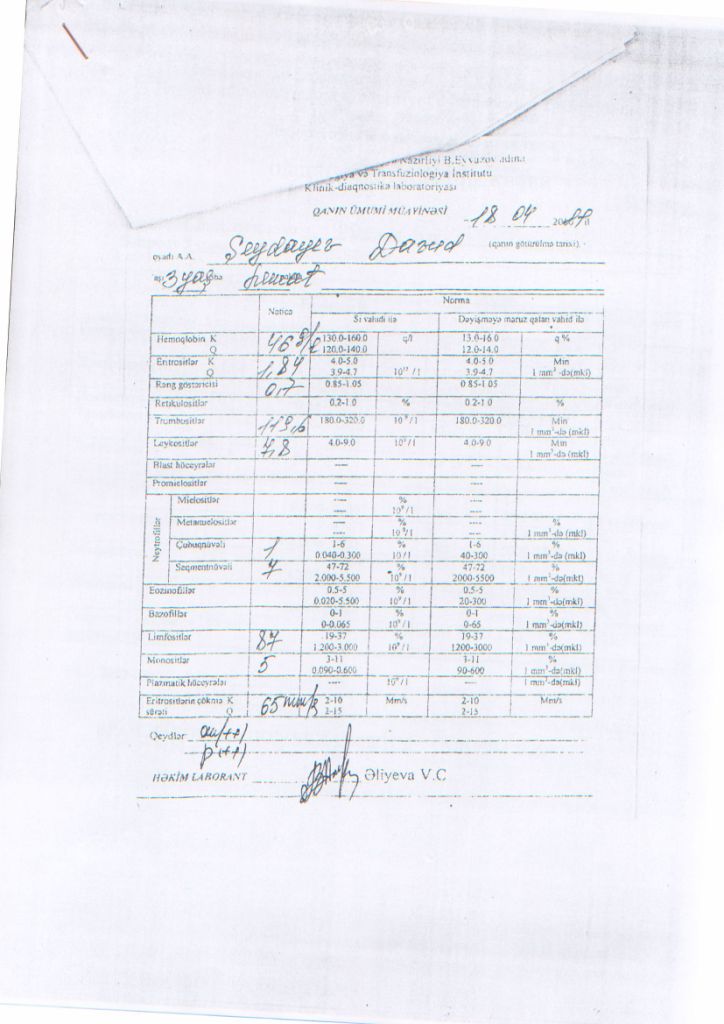 Nazirliyi B.Eyvazov adına
və Transfuziologiya İnstitutu
Klinik-diaqnostika laboratoriyası
QANIN ÜMUMİ MÜAYİNƏSİ 18 04
soyadı A.A. Seydayev David (qanın götürülmə tarixi).
3 yaş
Nəticə Norma
Si vahidi ilə Dəyişməyə məruz qalan vahid ilə
Hemoqlobin K 46 g/l 130.0-160.0 q/l 13.0-16.0 q %
Q 120.0-140.0 12.0-14.0
Eritrositlər K 1,84 4.0-5.0 4.0-5.0 Mln
Q 3.9-4.7 10¹² /l 3.9-4.7 1 mm³ -də(mkl)
Rəng göstəricisi 0,7 0.85-1.05 0.85-1.05
Retikulositlər 0.2-1.0 % 0.2-1.0 %
Trombositlər 119,6 180.0-320.0 10⁹ /l 180.0-320.0 Min
1 mm³-də (mkl)
Leykositlər 7,8 4.0-9.0 10⁹ /l 4.0-9.0 Min
1 mm³-də (mkl)
Blast hüceyrələr ---- ----
Promielositlər ---- ----
Neytrofillər
Mielositlər ---- % ----
---- 10⁹ /l ----
Metamielositlər ---- % ---- %
---- 10⁹ /l ---- 1 mm³-də (mkl)
Çubuqnüvəli 1 1-6 % 1-6 %
0.040-0.300 10⁹/l 40-300 1 mm³ -də (mkl)
Seqmentnüvəli 7 47-72 % 47-72 %
2.000-5.500 10⁹ /l 2000-5500 1 mm³-də(mkl)
Eozinofillər 0.5-5 % 0.5-5 %
0.020-5.500 10⁹ /l 20-300 1 mm³-də(mkl)
Bazofillər 0-1 % 0-1 %
0-0.065 10⁹ /l 0-65 1 mm³-də(mkl)
Limfositlər 87 19-37 % 19-37 %
1.200-3.000 10⁹ /l 1200-3000 1 mm³-də(mkl)
Monositlər 5 3-11 3-11 %
0.090-0.600 90-600 mm³-də(mkl)
Plazmatik hüceyrələr ---- 10⁹ /l ---- 1 mm³-də(mkl)
Eritrositlərin çökmə K 65 mm/s 2-10 Mm/s 2-10 Mm/s
sürəti Q 2-15 2-15
Qeydlər an(++)
p(++)
HƏKİM LABORANT Əliyeva V.C